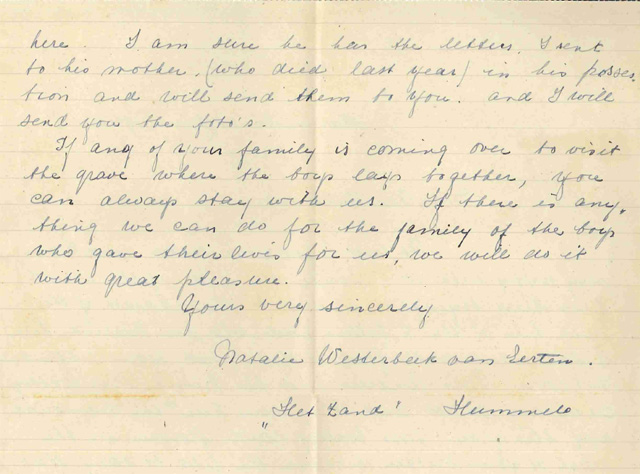 here. I am sure he has the letters, I sent
to his mother, (who died last year) in his posses
tion and will send them to you. and I will
send you the foto's.
If any of your family is coming over to visit
the grave where the boys lays together, you
can always stay with us. If there is any.
thing we can do for the family of the boys
who gave their livis for us, we will do it
with great pleasure.
Yours very sincerely
Natalie Westerbeek van Eerten.
„Het Zand' Hummelo